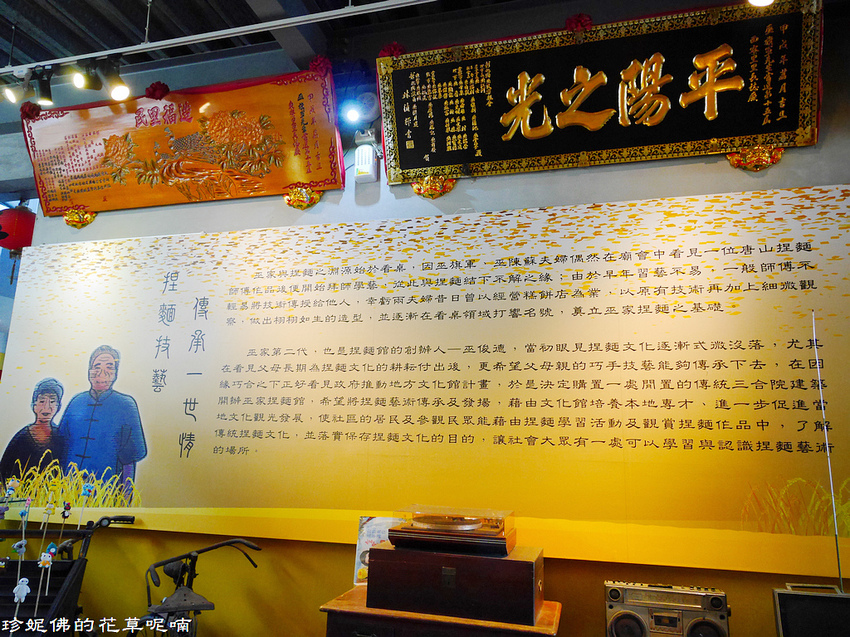 民里福造
平陽之光
傳承一世情
捏麵技藝
巫家與捏麵之淵源始於看桌，因巫旗軍、巫陳蘇夫婦偶然在廟會中看見一位唐山捏麵
師傅作品後便開始拜師學藝，從此與捏麵結下不解之緣；由於早年習藝不易，一般師傅不
輕易將技術傳授給他人，幸虧兩夫婦昔日曾以經營糕餅店為業，以原有技術再加上細微觀
察，做出栩栩如生的造型，並逐漸在看桌領域打響名號，奠立巫家捏麵之基礎。
巫家第二代，也是捏麵館的創辦人─巫俊德，當初眼見捏麵文化逐漸式微沒落，尤其
在看見父母長期為捏麵文化的耕耘付出後，更希望父母親的巧手技藝能夠傳承下去，在因
緣巧合之下正好看見政府推動地方文化館計畫，於是決定購置一處閒置的傳統三合院建築
開辦巫家捏麵館，希望將捏麵藝術傳承及發揚，藉由文化館培養本地專才，進一步促進當
地文化觀光發展，使社區的居民及參觀民眾能藉由捏麵學習活動及觀賞捏麵作品中，了解
傳統捏麵文化，並落實保存捏麵文化的目的，讓社會大眾有一處可以學習與認識捏麵藝術
的場所。
珍妮佛的花草呢喃